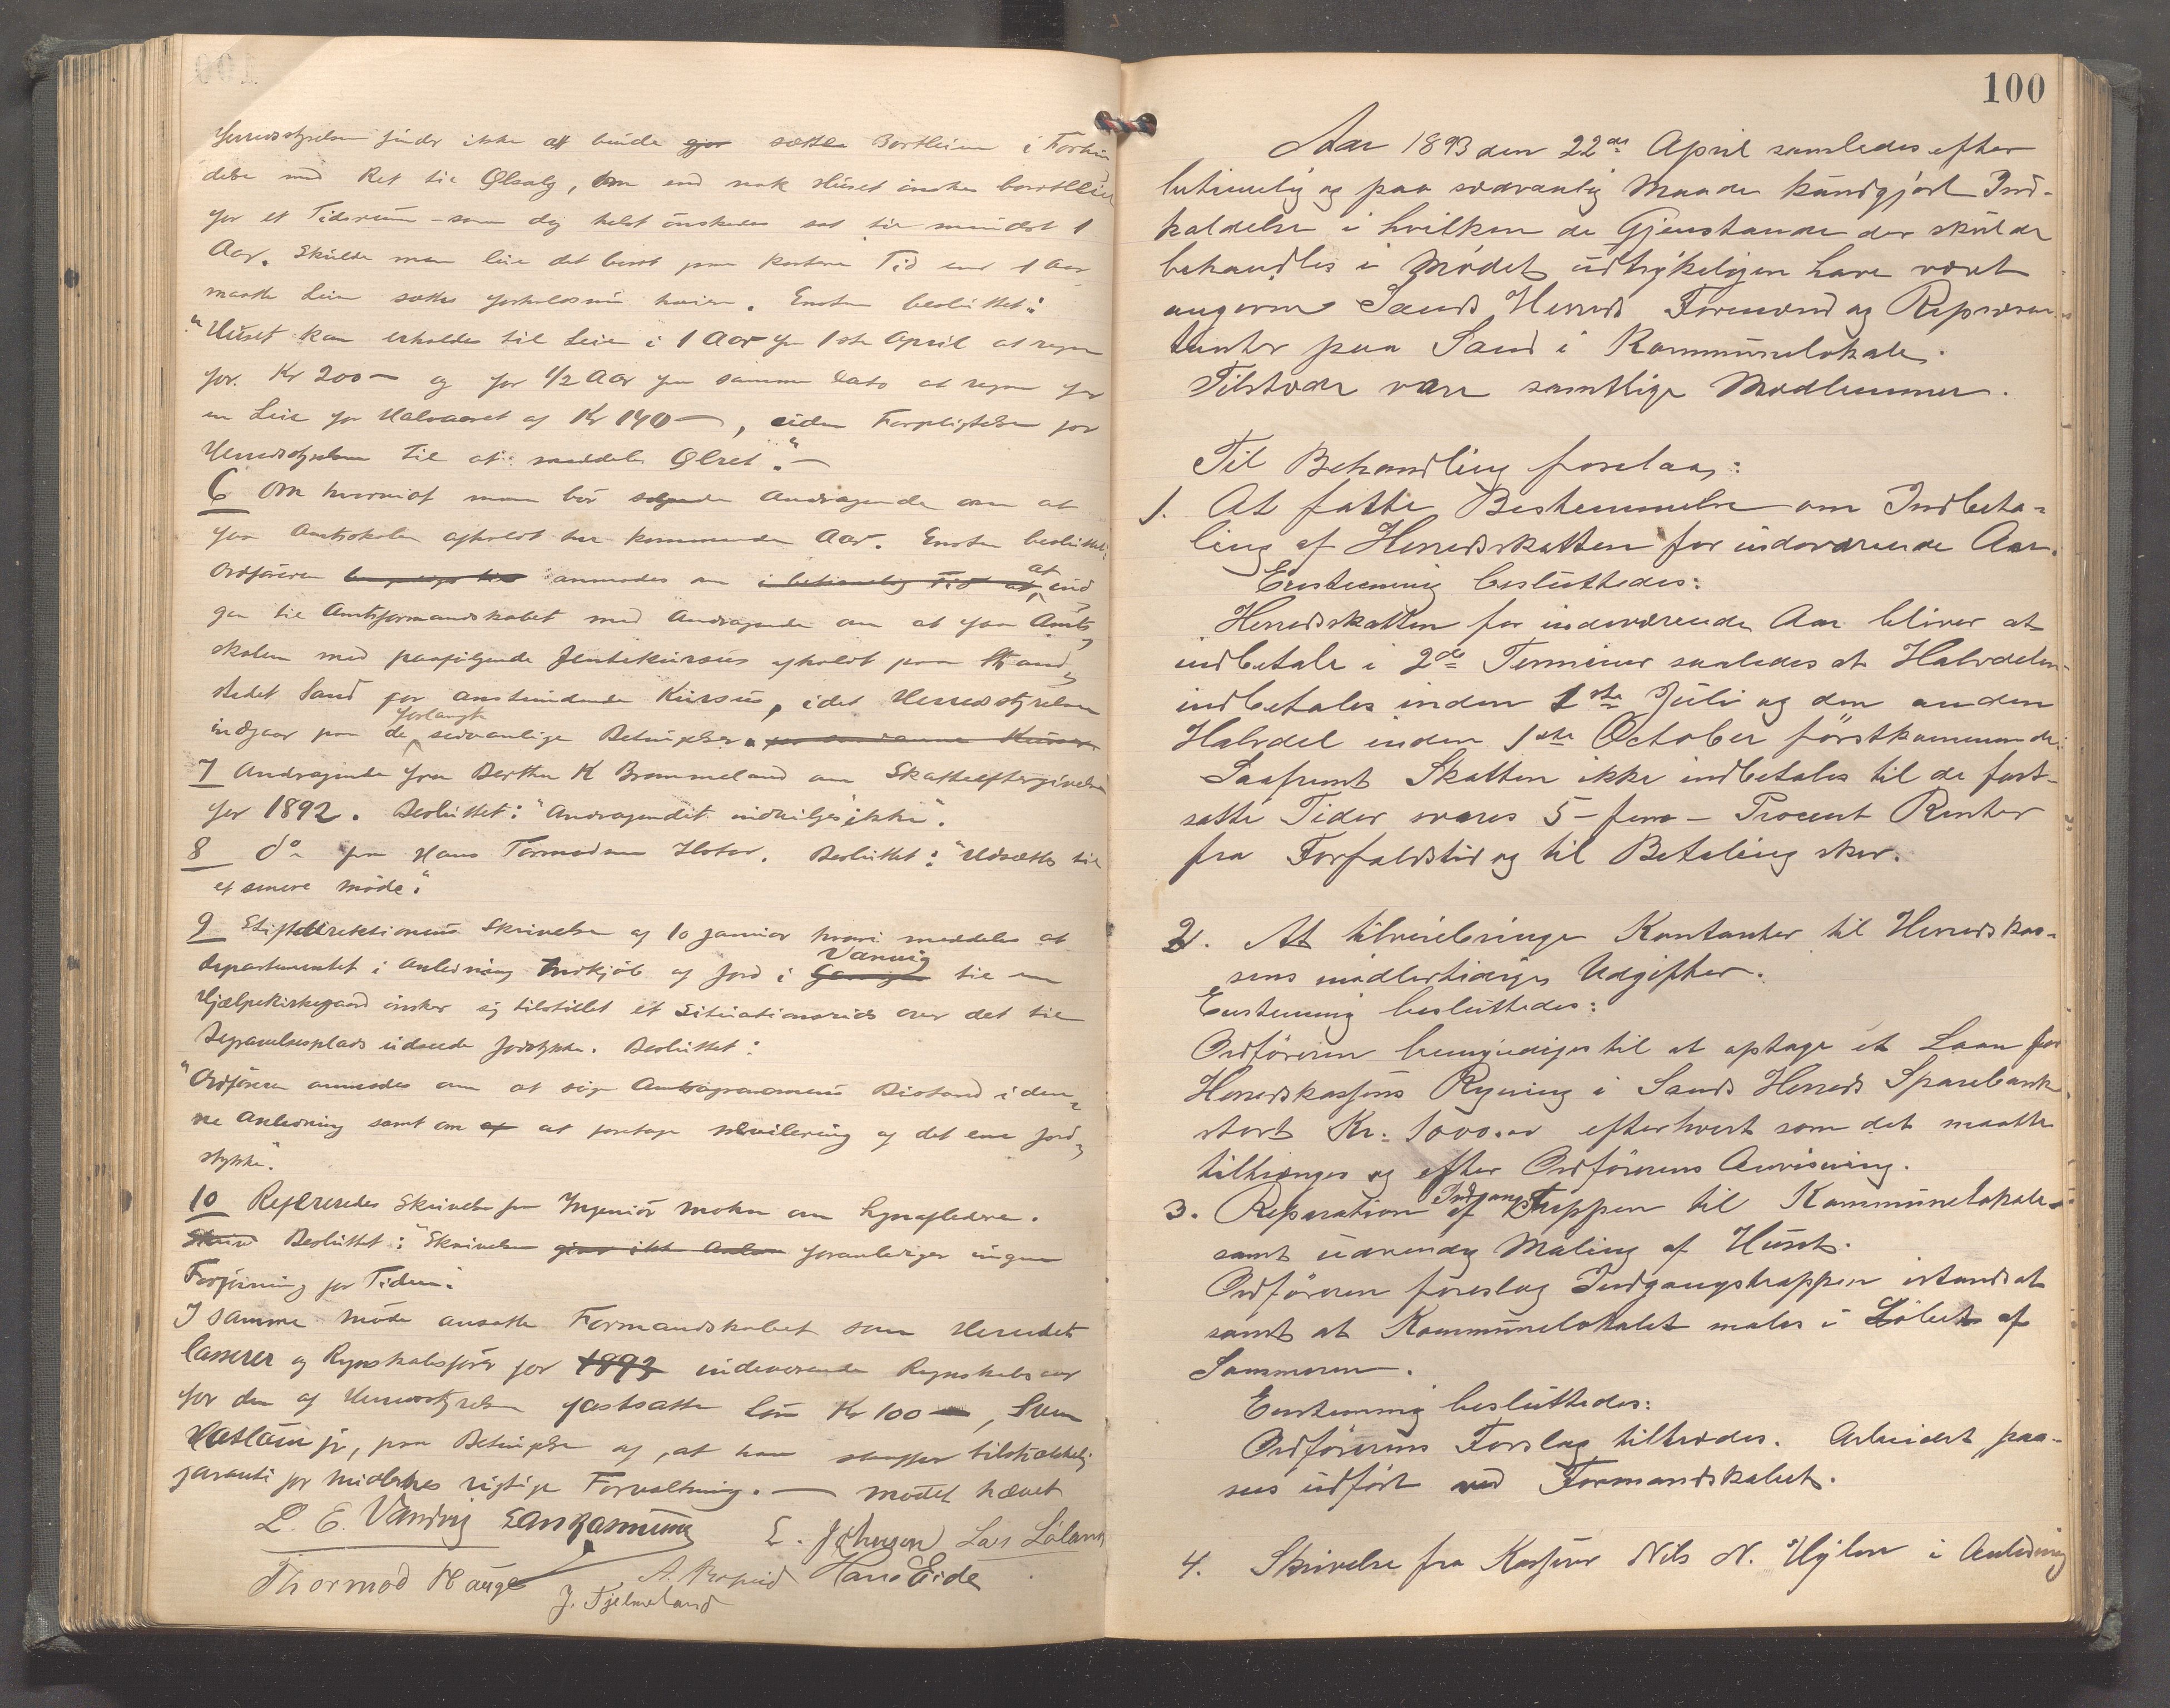 Herredsstyrelsen finder ikke at burde gjør sætte Bortleien i Forbin
delse med Ret til Ølsalg, om end nok Huset ønskes bortleiet
for et Tidsrum som dog helst ønskedes sat til mindst 1
Aar. Skulde man leie det bort paa kortere Tid end 1 Aar
maatte Leien sættes forholdsvis høiere. Enst. besluttet:
"Huset kan erholdes til Leie i 1 Aar fra 1ste April at regne
for Kr 200 — og for 1/2 Aar fra samme Dato at regne for
en Leie for Halvaaret af Kr 140 —, uden Forpligtelse for
Herredsstyrelsen til at meddele Ølret." —
6 Om hvorvidt man bør andragende om at
faa Amtsskolen afholdt her kommende Aar. Enst. besluttet:
Ordføreren bemyndiges til anmodes om i betimelig Tid at at ind
gaa til Amtsformandskabet med Andragende om at faa Amts
skolen med paafølgende Jentekursus afholdt paa Strand
stedet Sand for anstundende Kursus, idet Herredsstyrelsen
indgaar paa de forlangte sedvanlige Betingelser
7 Andragende fra Berthe K Brommeland om Skatteeftergivelse
for 1892. Besluttet: "Andragendet indvilges ikke".
8 do fra Hans Tormodsen Besluttet: "Udsættes til
et senere Møde".
9 Stiftsdirektionens Skrivelse af 10 januar hvori meddeles at
Departementet i Anledning Indkjøb af Jord i Vanvig til en
Hjælpekirkegaard ønsker sig tilstillet et Situationsrids over det til
Begravelsesplads udseede Jordstykke. Besluttet:
"Ordføreren anmodes om at søge Amtsagronomens Bistand i den
ne Anledning samt om af at foretage Nivilering af det ene Jord
stykke".
10 Refereredes Skrivelse fra Ingeniør Mohn om Lynafledere.
Skriv Besluttet: "Skrivelsen foranlediger ingen
Forføining for Tiden."
I samme Møde ansatte Formandskabet som Herredets
Casserer og Regnskabsfører for 1893 indeværende Regnskabsaar
for den af Herredsstyrelsen fastsatte Løn Kr 100 —, Sven
jr, paa Betingelse af, at han skaffer tilstrækkelig
garanti for Midlernes rigtige Forvaltning. — Mødet hævet
L. E. Vandvig E. Johnson Lars Løland
Thormod Hauge Hans Eide
J. Fjelmeland
100
Aar 1893 den 22de April samledes efter
betimelig og paa sedvanlig Maade kundgjort Ind-
kaldelse i hvilken de Gjenstande der skulde
behandles i Mødet udtrykkeligen have været
angivne Sands Herreds Formænd og Repræsen-
tanter paa Sand i Kommunelokalet.
Tilstede vare samtlige Medlemmer.
Til Behandling forelaa:
1. At fatte Bestemmelse om Indbeta-
ling af Herredsskatten for indeværende Aar.
Enstemmig besluttedes:
Herredsskatten for indeværende Aar bliver at
indbetale i 2de Terminer saaledes at Halvdelen
indbetales inden 1ste Juli og den anden
Halvdel inden 1ste October førstkommende.
Saafremt Skatten ikke indbetales til de fast-
satte Tider svares 5 - fem - Procent Renter
fra Forfaldstid og til Betaling sker.
2. At tilveiebringe Kontanter til Herredskas-
sens midlertidige Udgifter.
Enstemmig besluttedes:
Ordføreren bemyndiges til at optage et Laan for
Herredskassens Regning i Sands Herreds Sparebank
stort Kr. 1000.00 efterhvert som det maatte
tiltrænges og efter Ordførerens Anvisning.
3. Reparation af Indgangstrappen til Kommunelokalet
samt udvendig Maling af Huset.
Ordføreren foreslog Indgangstrappen istandsat
samt at Kommunelokalet males i Løbet af
Sommeren.
Enstemmig besluttedes:
Ordførerens Forslag tiltrædes. Arbeidet paa-
sees udført ved Formandskabet.
4. Skrivelse fra Kasserer Nils N. Hylen i Anledning